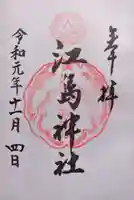 奉拝
江島神社
令和元年十一月四日